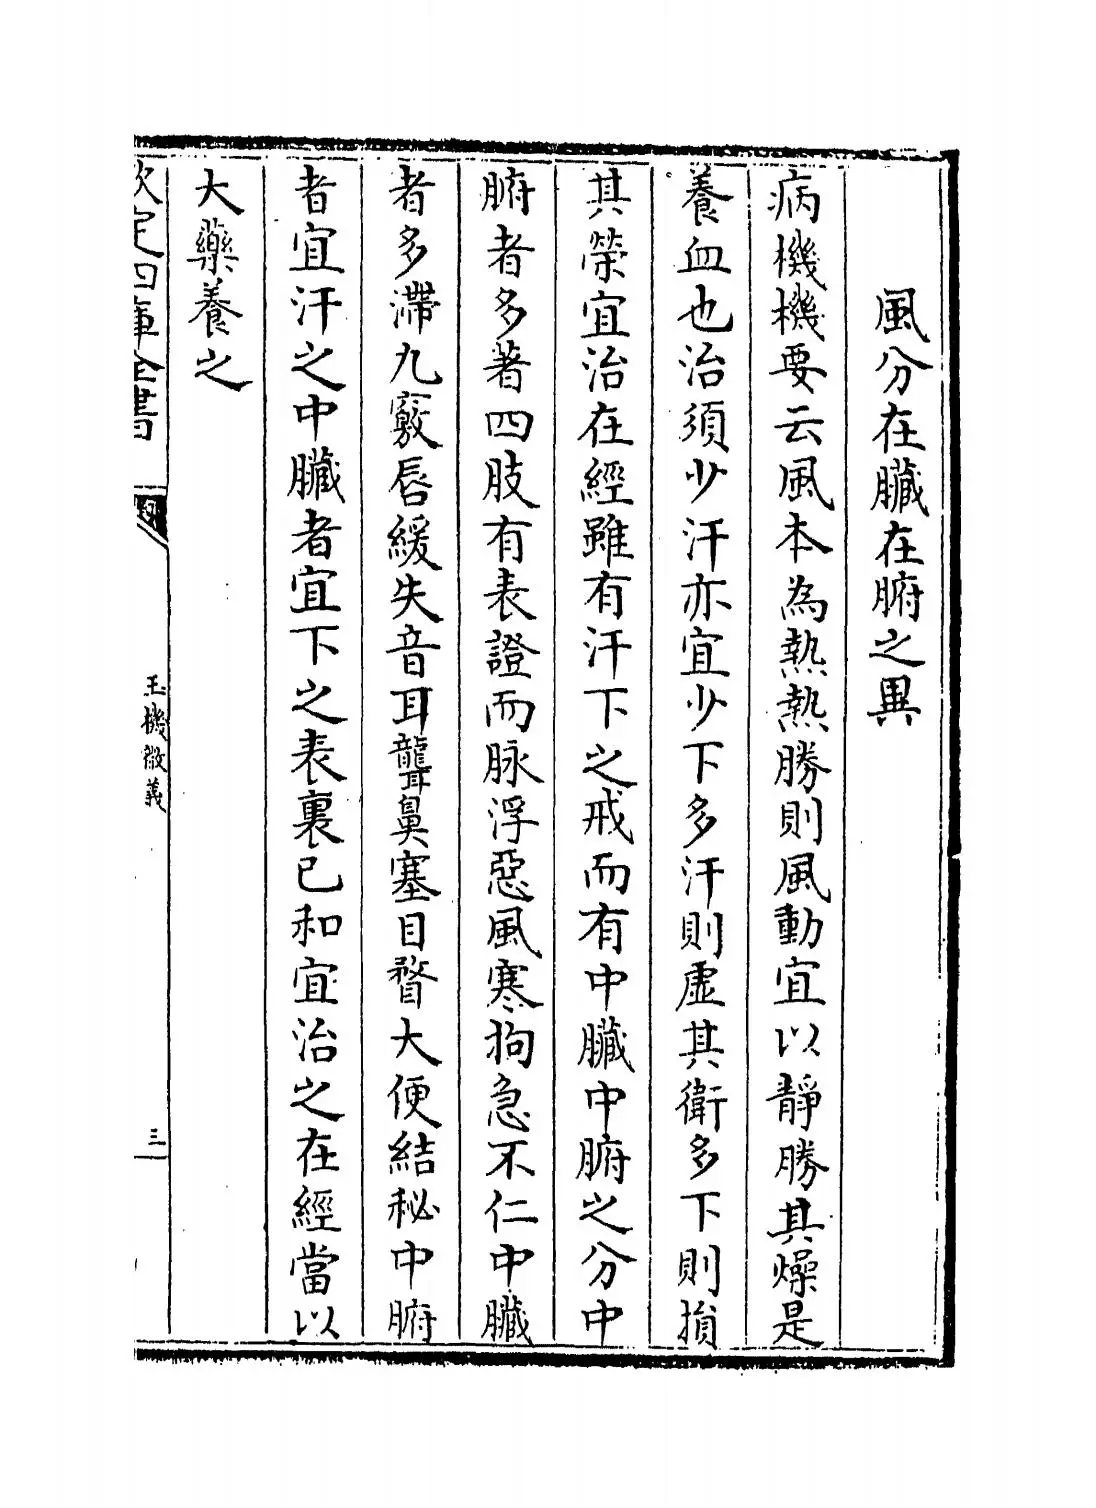 風分在臟在腑之異
病機機要云風本為熱熱勝則風動宜以靜勝其燥是
養血也治須少汗亦宜少下多汗則虛其衛多下則損
其榮宜治在經雖有汗下之戒而有中臟中腑之分中
腑者多著四肢有表證而脉浮惡風寒拘急不仁中臟
者多滯九竅唇緩失音耳聾鼻塞目瞀大便結秘中腑
者宜汗之中臟者宜下之表裏已和宜治之在經當以
大藥養之
欽定四庫全書
玉機微義
三